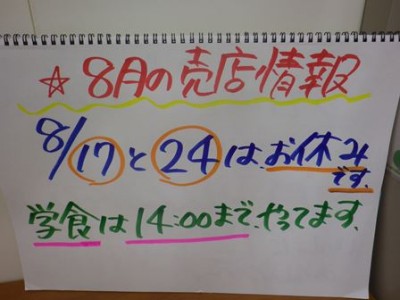 ☆8月の売店情報
8/17と24はお休み
です.
学食は14:00までやってます.